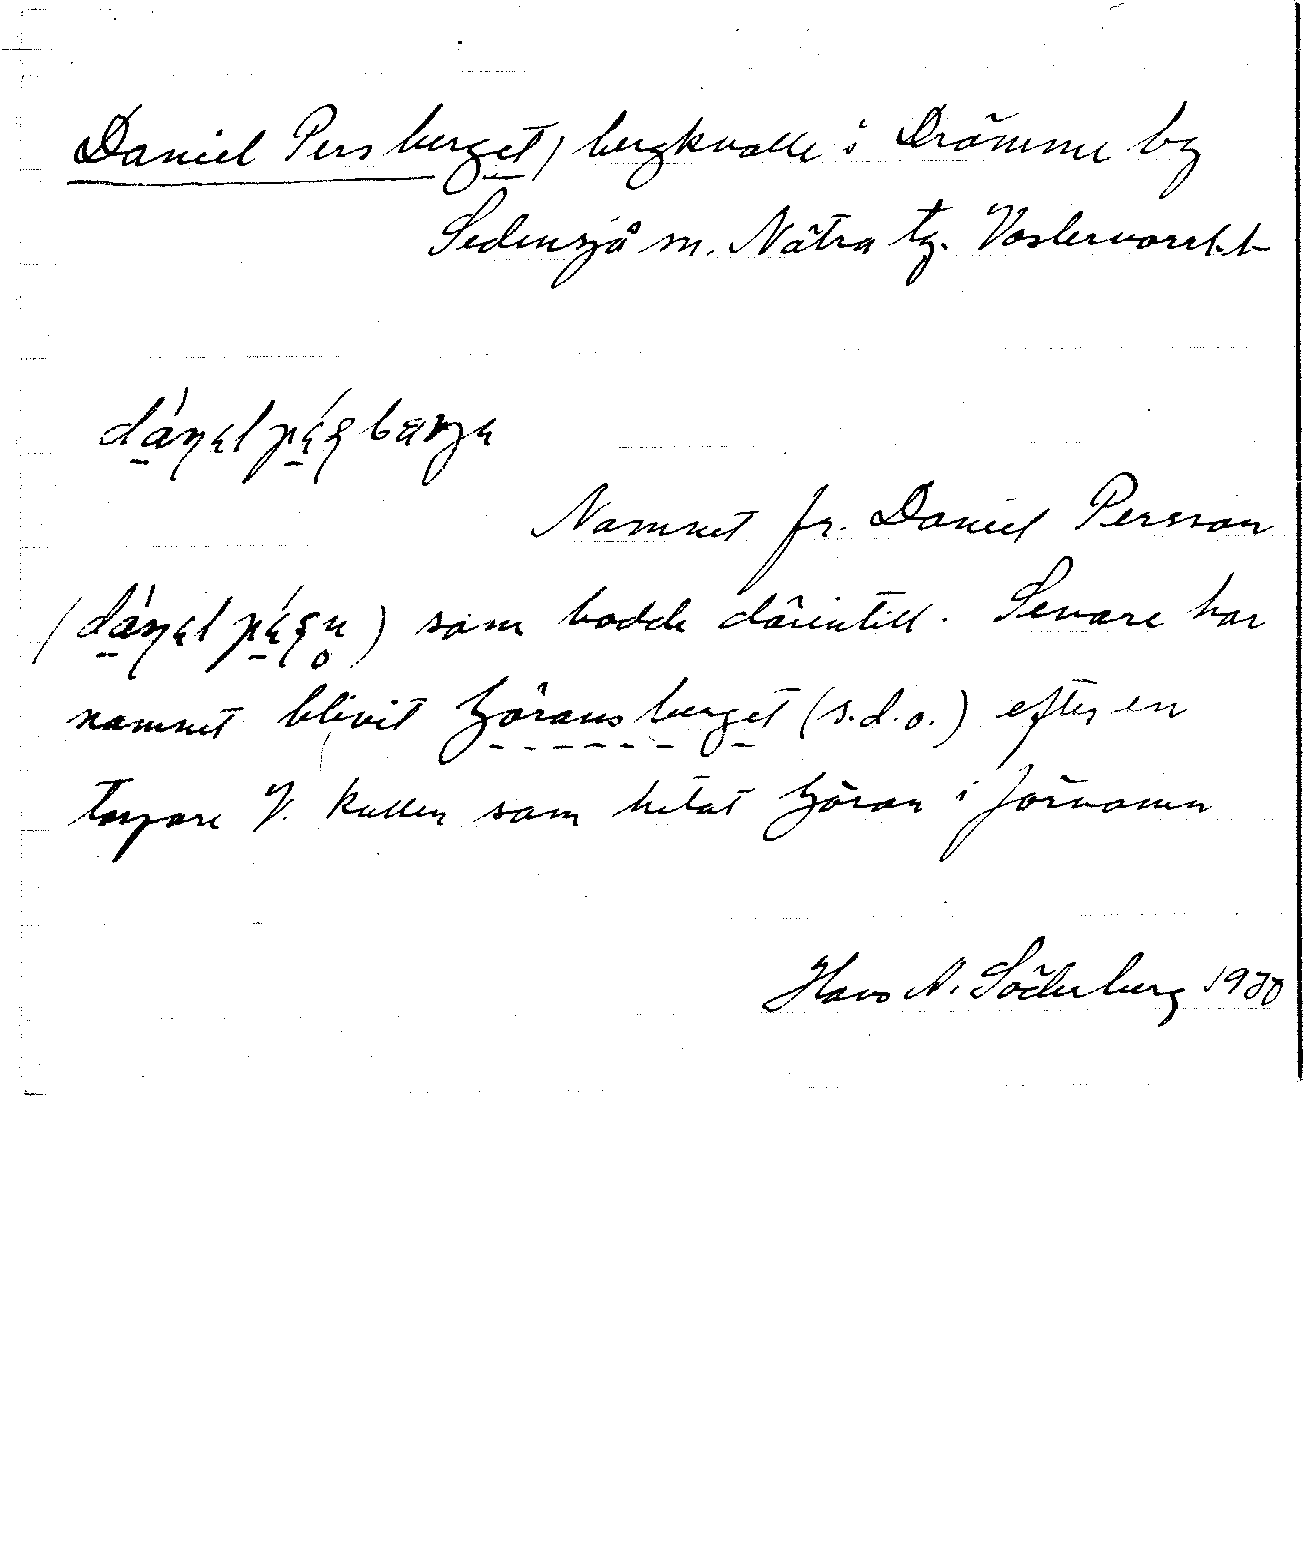 Daniel Persberget) bergkvalle i Drömme by
Sidensjö sn. Nätra tg. Västernorrl.l.
Namnet fr. Daniel Persson
som bodde därintill. Senare har
namnet blivit Göransberget (s.d.o.) efter en
torpare V. Kullen som hetat Göran i förnamn
Hans N. Söderberg 1930